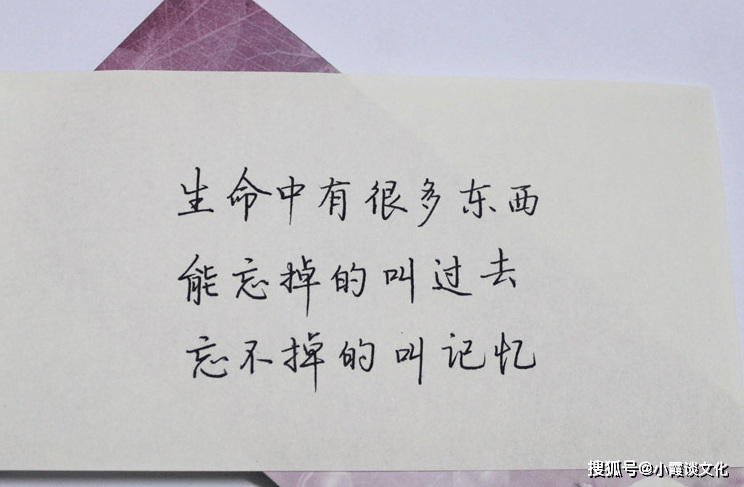 生命中有很多东西
能忘掉的叫过去
忘不掉的叫记忆
搜狐号@小霞谈文化